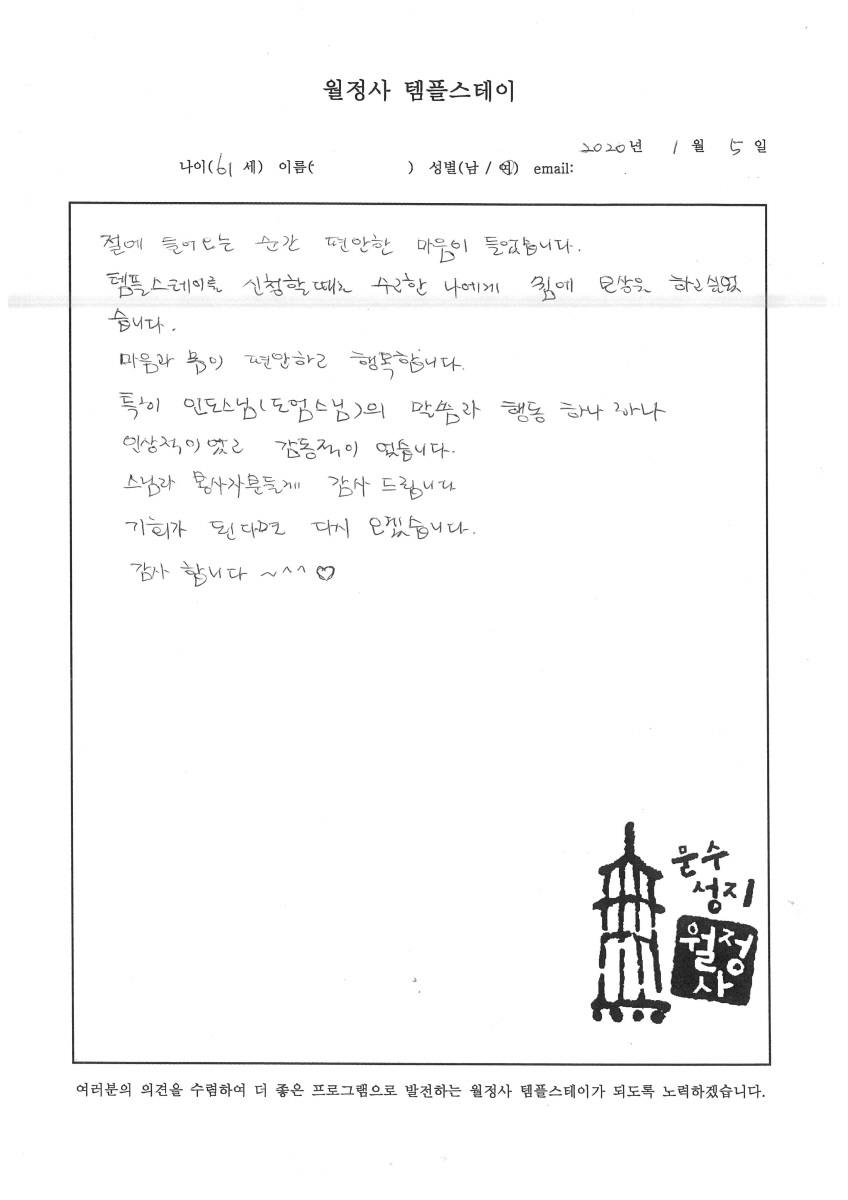 월정사 템플스테이
2020년 1월 5일
나이(61세) 이름( ) 성별(남 / 여) email:
절에 들어오는 순간 편안한 마음이 들었습니다.
템플스테이를 신청할때는 수고한 나에게 쉼에 보상을 하고싶었
습니다.
마음과 몸이 편안하고 행복합니다.
특히 인도스님(도엄스님)의 말씀과 행동 하나 하나
인상적이였고 감동적이 였습니다.
스님과 봉사자분들게 감사 드립니다
기회가 된다면 다시 오겠습니다.
감사 합니다 ~^^ ♡
문수
성지
월정
사
여러분의 의견을 수렴하여 더 좋은 프로그램으로 발전하는 월정사 템플스테이가 되도록 노력하겠습니다.